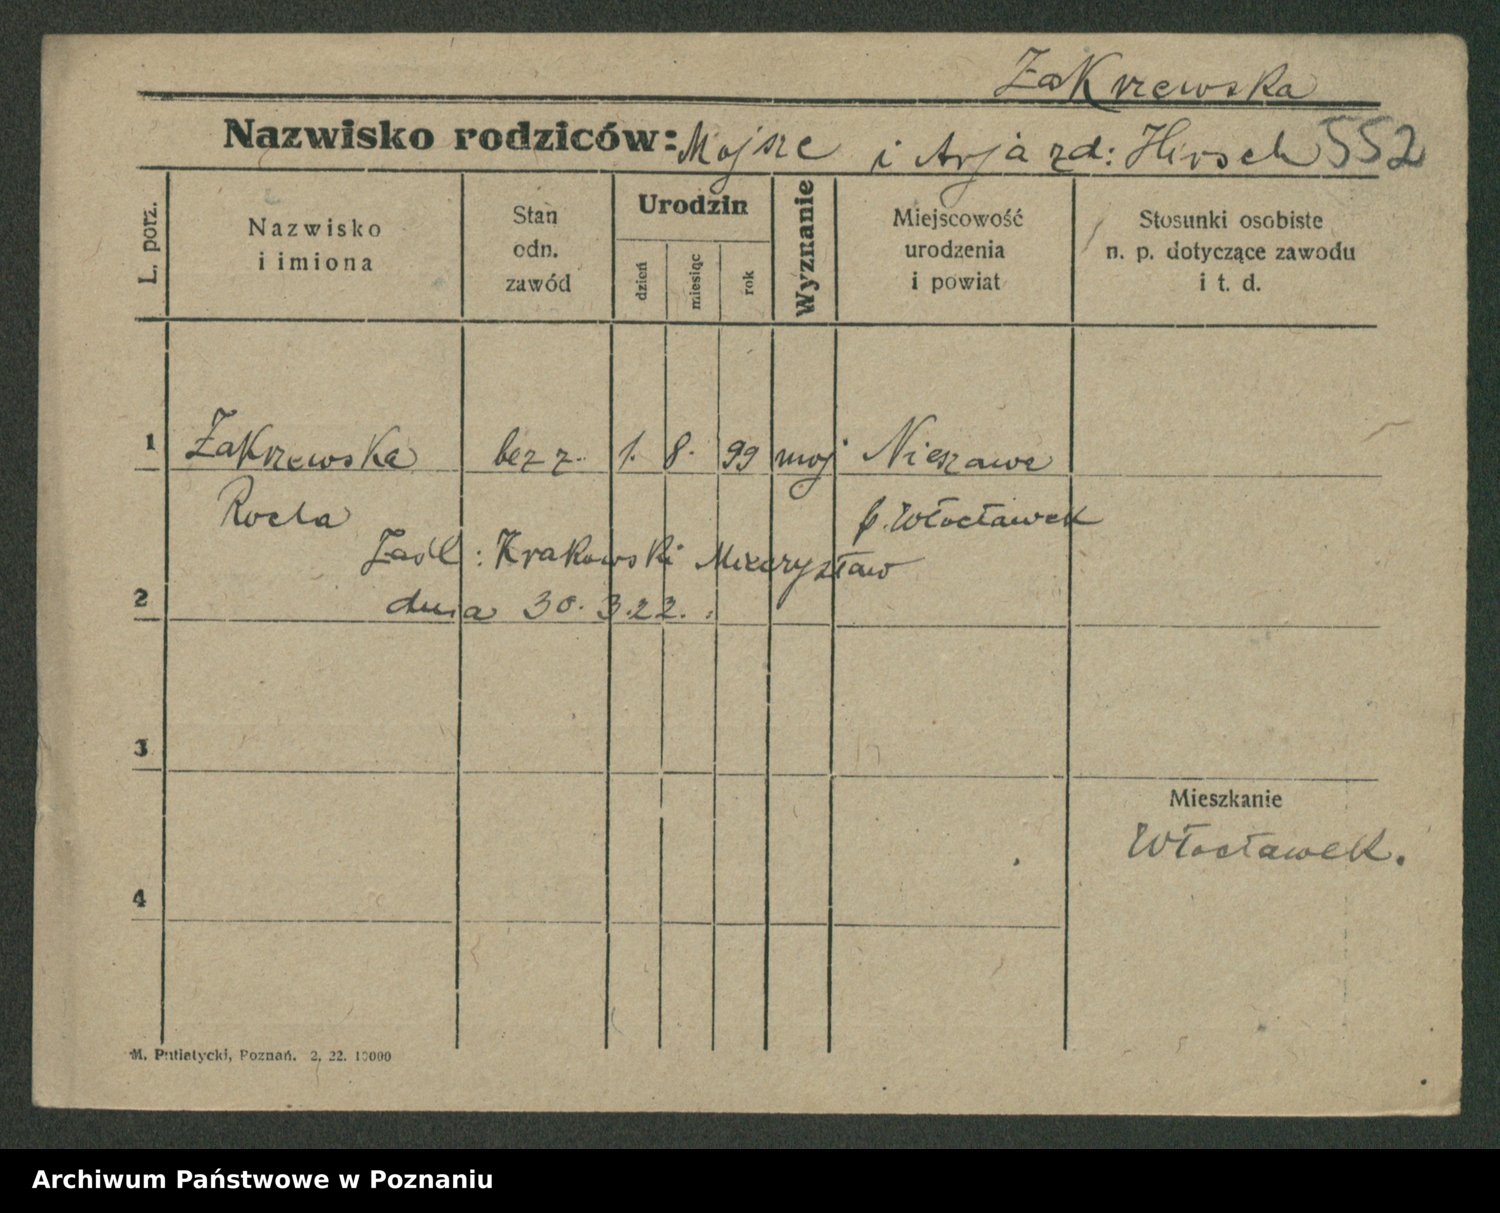 Zakrzewska
Nazwisko rodziców: Mojsze i Arja zd: Hirsch 552
L. porz.
Nazwisko
i imiona
Stan
odn.
zawód
Urodzin
dzień
miesiąc
rok
Wyznanie
Miejscowość
urodzenia
i powiat
Stosunki osobiste
n. p. dotyczące zawodu
i t. d.
1 Zakrzewska bez z. 1. 8. 99 moj Nieszawa
Rocha p. Włocławek
Zaśl: Krakowski Mieczysław
2 dnia 30.3.22.
3
Mieszkanie
Włocławek.
4
M. Putiatycki, Poznań. 2, 22. 10000
Archiwum Państwowe w Poznaniu